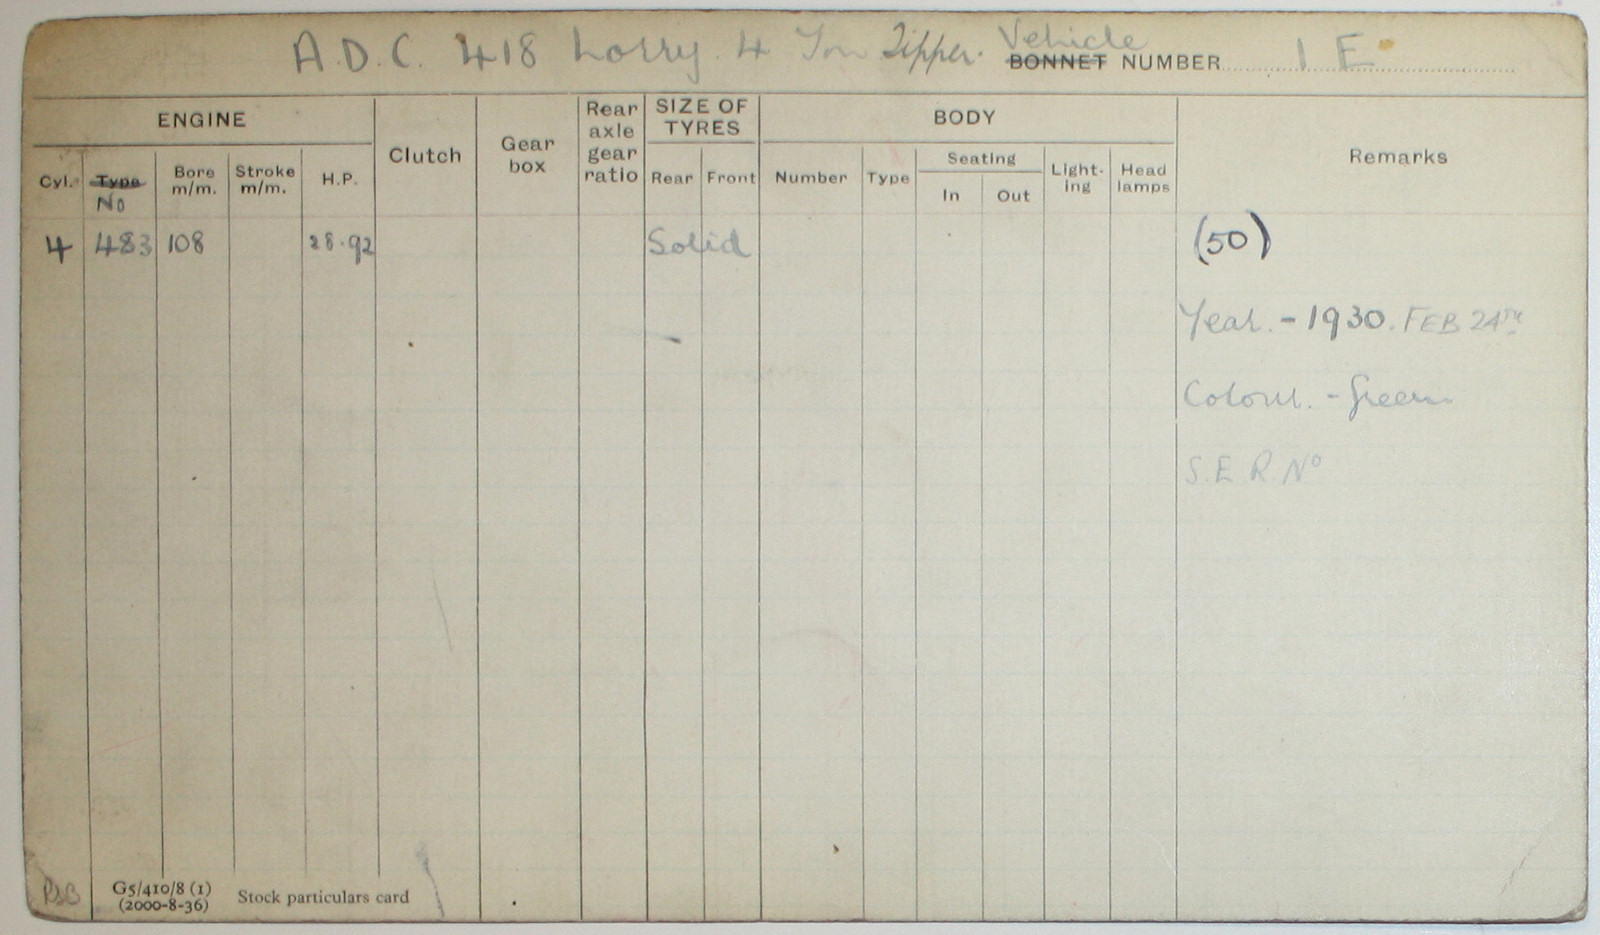 A.D.C. 418 Lorry. 4 Ton Tipper. Vehicle
BONNET NUMBER 1 E
ENGINE
Clutch
Gear box
Rear axle gear ratio
SIZE OF TYRES
BODY
Remarks
Cyl. Type Bore m/m. Stroke m/m. H.P.
No
Rear Front
Number Type Seating In Out Light-ing Head lamps
4 483 108 28.92 Solid (50)
Year. - 1930. FEB 24TH
Colour. - Green
S.E.R. No
G5/410/8 (1)
(2000-8-36)
Stock particulars card